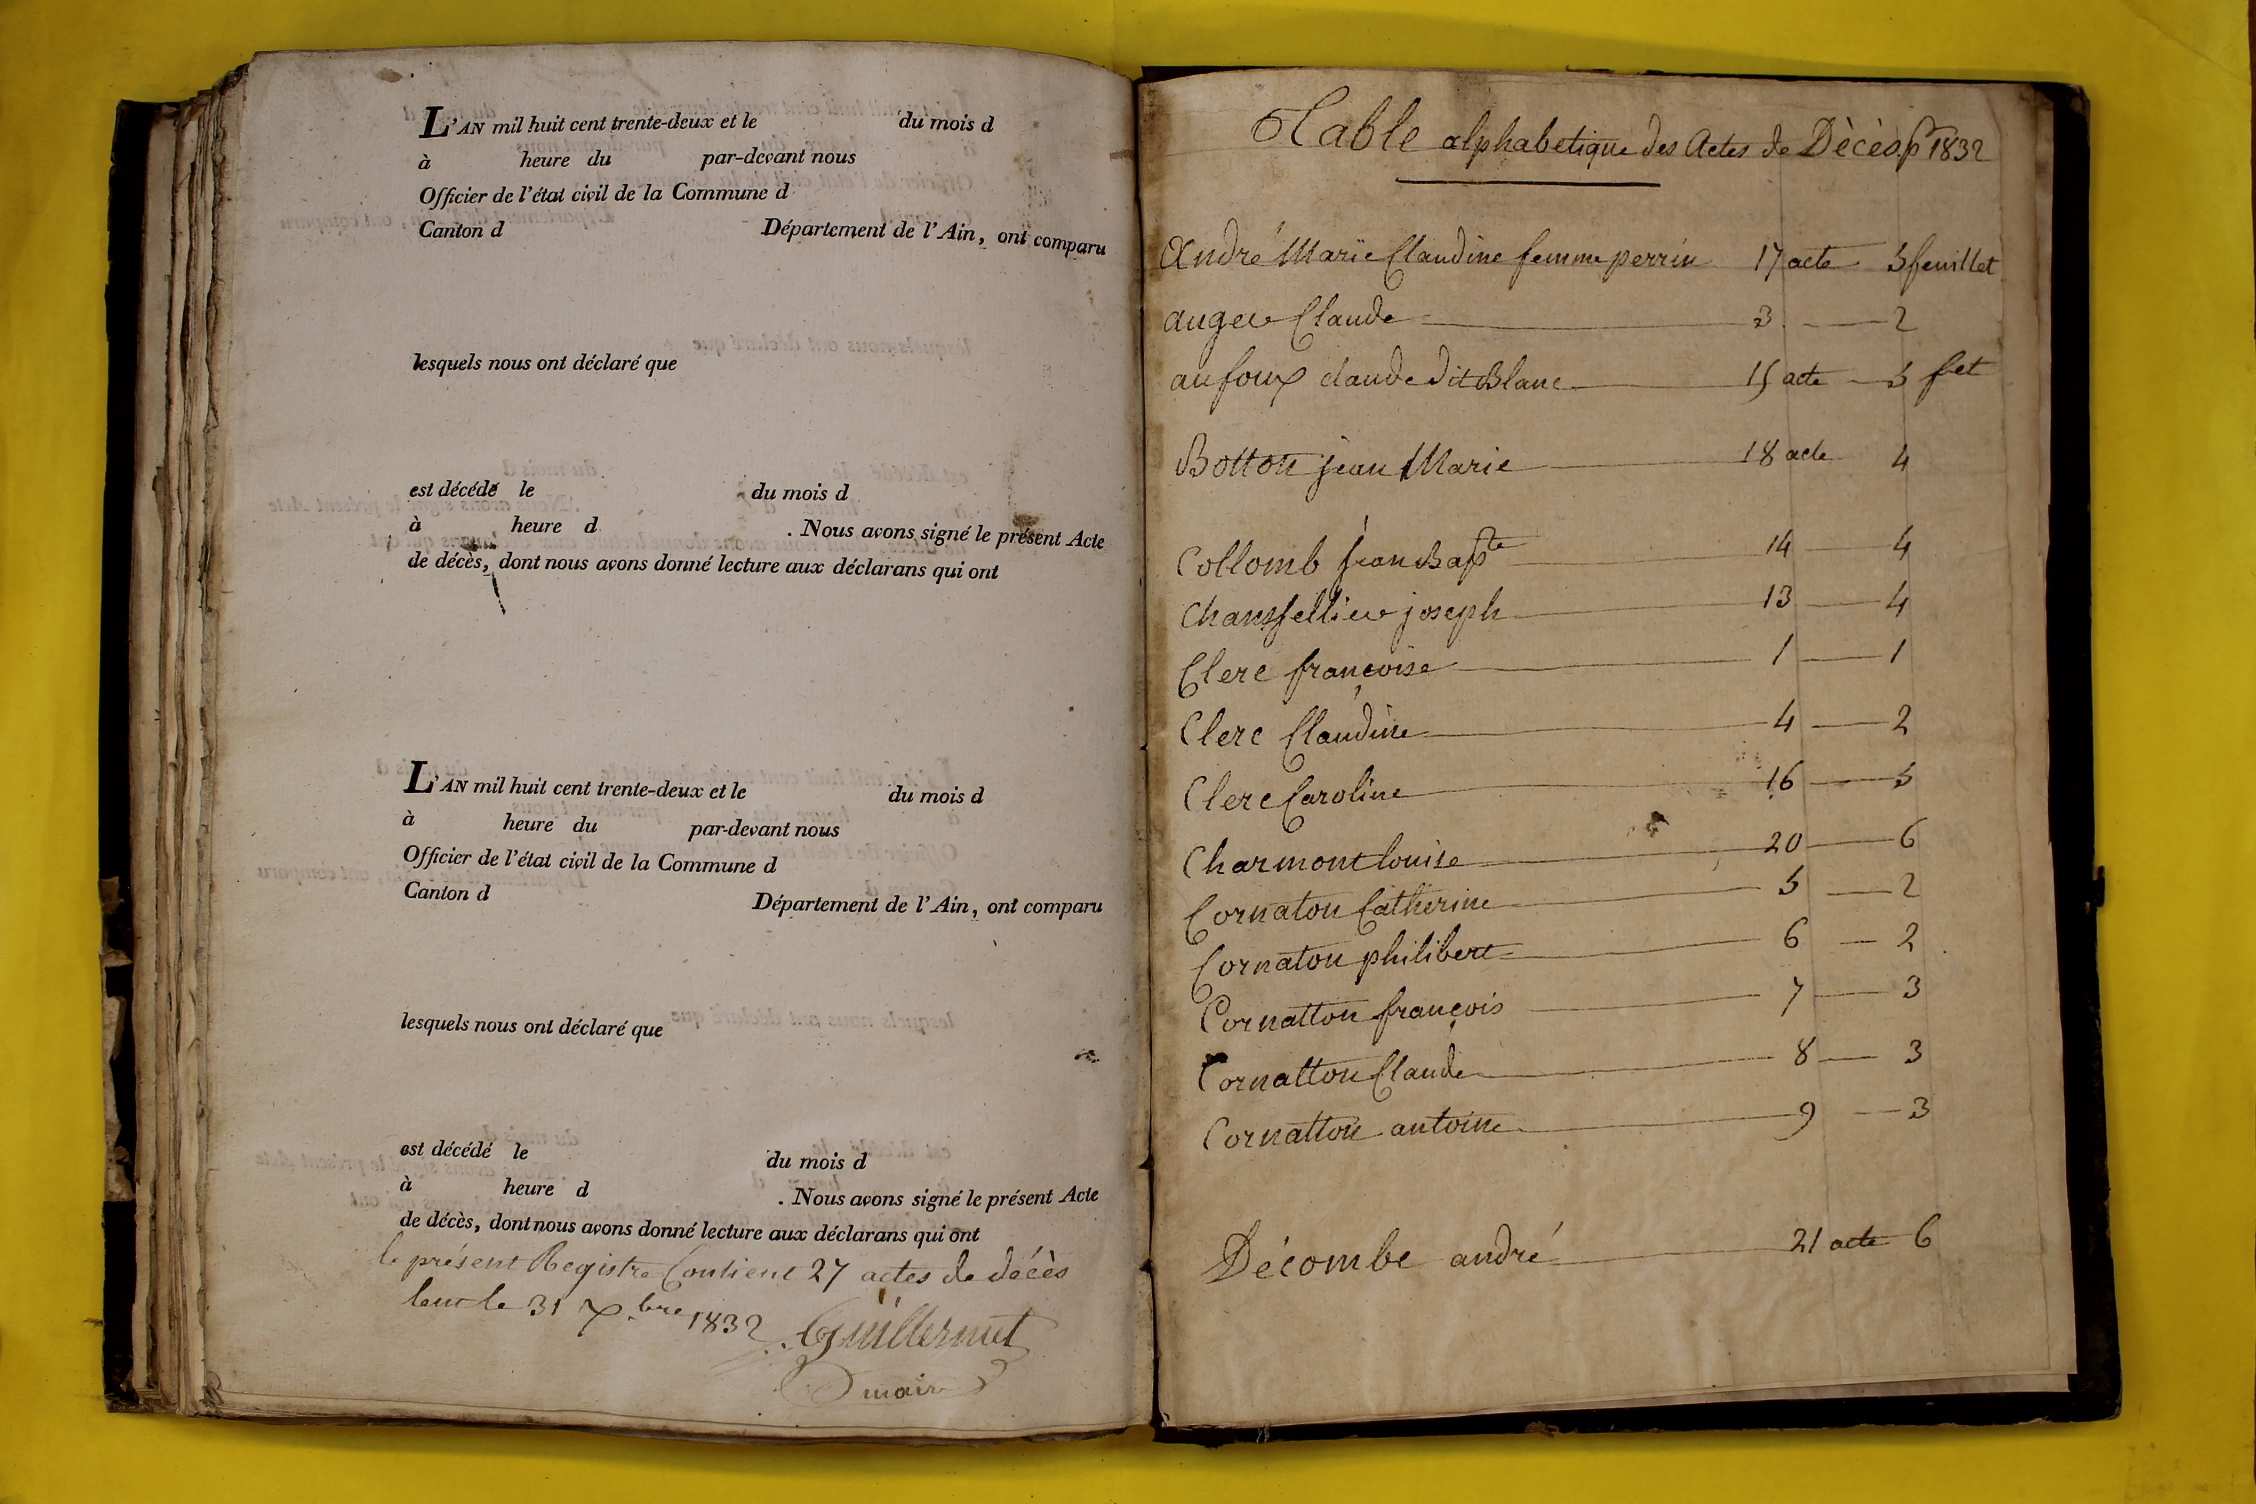 L'AN mil huit cent trente-deux et le du mois d
à heure du par-devant nous
Officier de l'état civil de la Commune d
Canton d Département de l'Ain, ont comparu
lesquels nous ont déclaré que
est décédé le du mois d
à heure d . Nous avons signé le présent Acte
de décès, dont nous avons donné lecture aux déclarans qui ont
L'AN mil huit cent trente-deux et le du mois d
à heure du par-devant nous
Officier de l'état civil de la Commune d
Canton d Département de l'Ain, ont comparu
lesquels nous ont déclaré que
est décédé le du mois d
à heure d . Nous avons signé le présent Acte
de décès, dont nous avons donné lecture aux déclarans qui ont
le présent Registre Contient 27 actes de décès
le 31 Xbre 1832 Guillermet
maire
Table alphabetique des Actes de Décès pr 1832
André Marie Claudine femme perrin 17 acte 5 feuillet
auger Claude 3 2
aufoux claude dit Blanc 15 acte 5 fet
Botton jean Marie 18 acte 4
Collomb jean Bapte 14 4
joseph 13 4
Clerc françoise 1 1
Clerc Claudine 4 2
Clerc Caroline 16 5
Charmont louise 20 6
Cornaton Catherine 5 2
Cornaton philibert 6 2
Cornatton françois 7 3
Cornatton Claude 8 3
Cornatton antoine 9 3
Décombe andré 21 acte 6